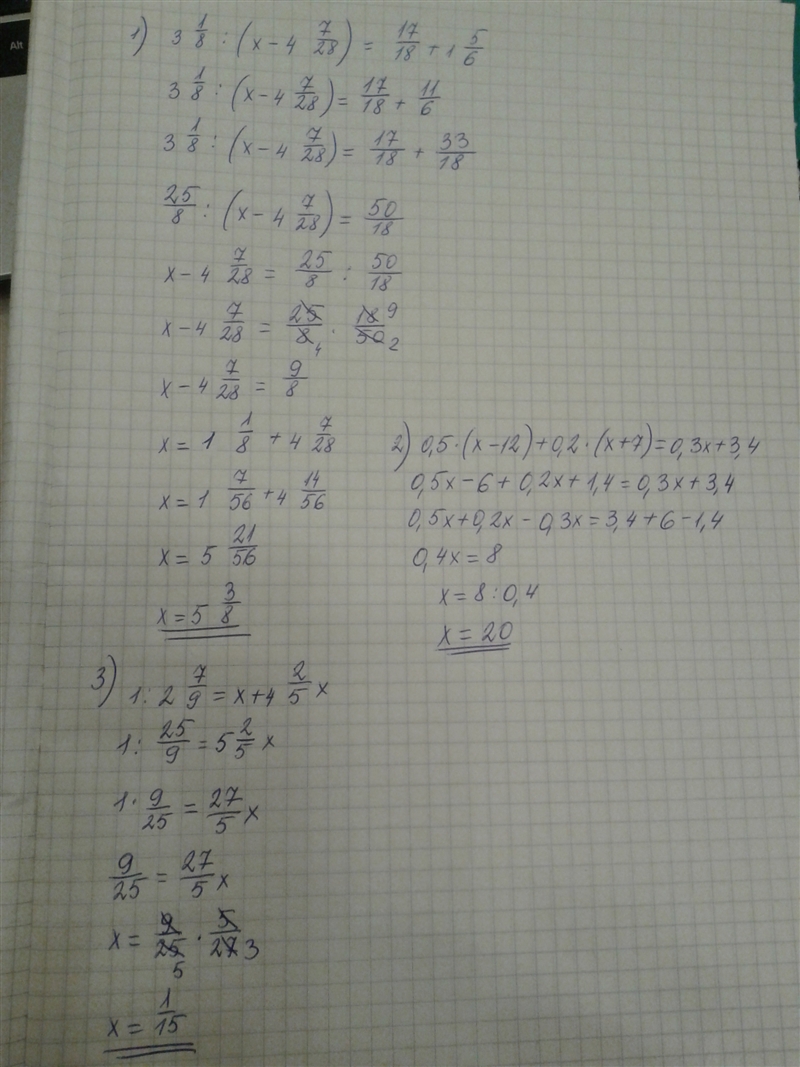 Alt
1) 3 1/8 : (x - 4 7/28) = 17/18 + 1 5/6
3 1/8 : (x - 4 7/28) = 17/18 + 11/6
3 1/8 : (x - 4 7/28) = 17/18 + 33/18
25/8 : (x - 4 7/28) = 50/18
x - 4 7/28 = 25/8 : 50/18
x - 4 7/28 = 25/8 4 · 18/50 9 2
x - 4 7/28 = 9/8
x = 1 1/8 + 4 7/28
x = 1 7/56 + 4 14/56
x = 5 21/56
x = 5 3/8
2) 0,5·(x-12)+0,2·(x+7)=0,3x+3,4
0,5x-6+0,2x+1,4=0,3x+3,4
0,5x+0,2x-0,3x=3,4+6-1,4
0,4x=8
x=8:0,4
x=20
3) 1 : 2 7/9 = x + 4 2/5 x
1 : 25/9 = 5 2/5 x
1 · 9/25 = 27/5 x
9/25 = 27/5 x
x = 9/25 5 · 5/27 3
x = 1/15